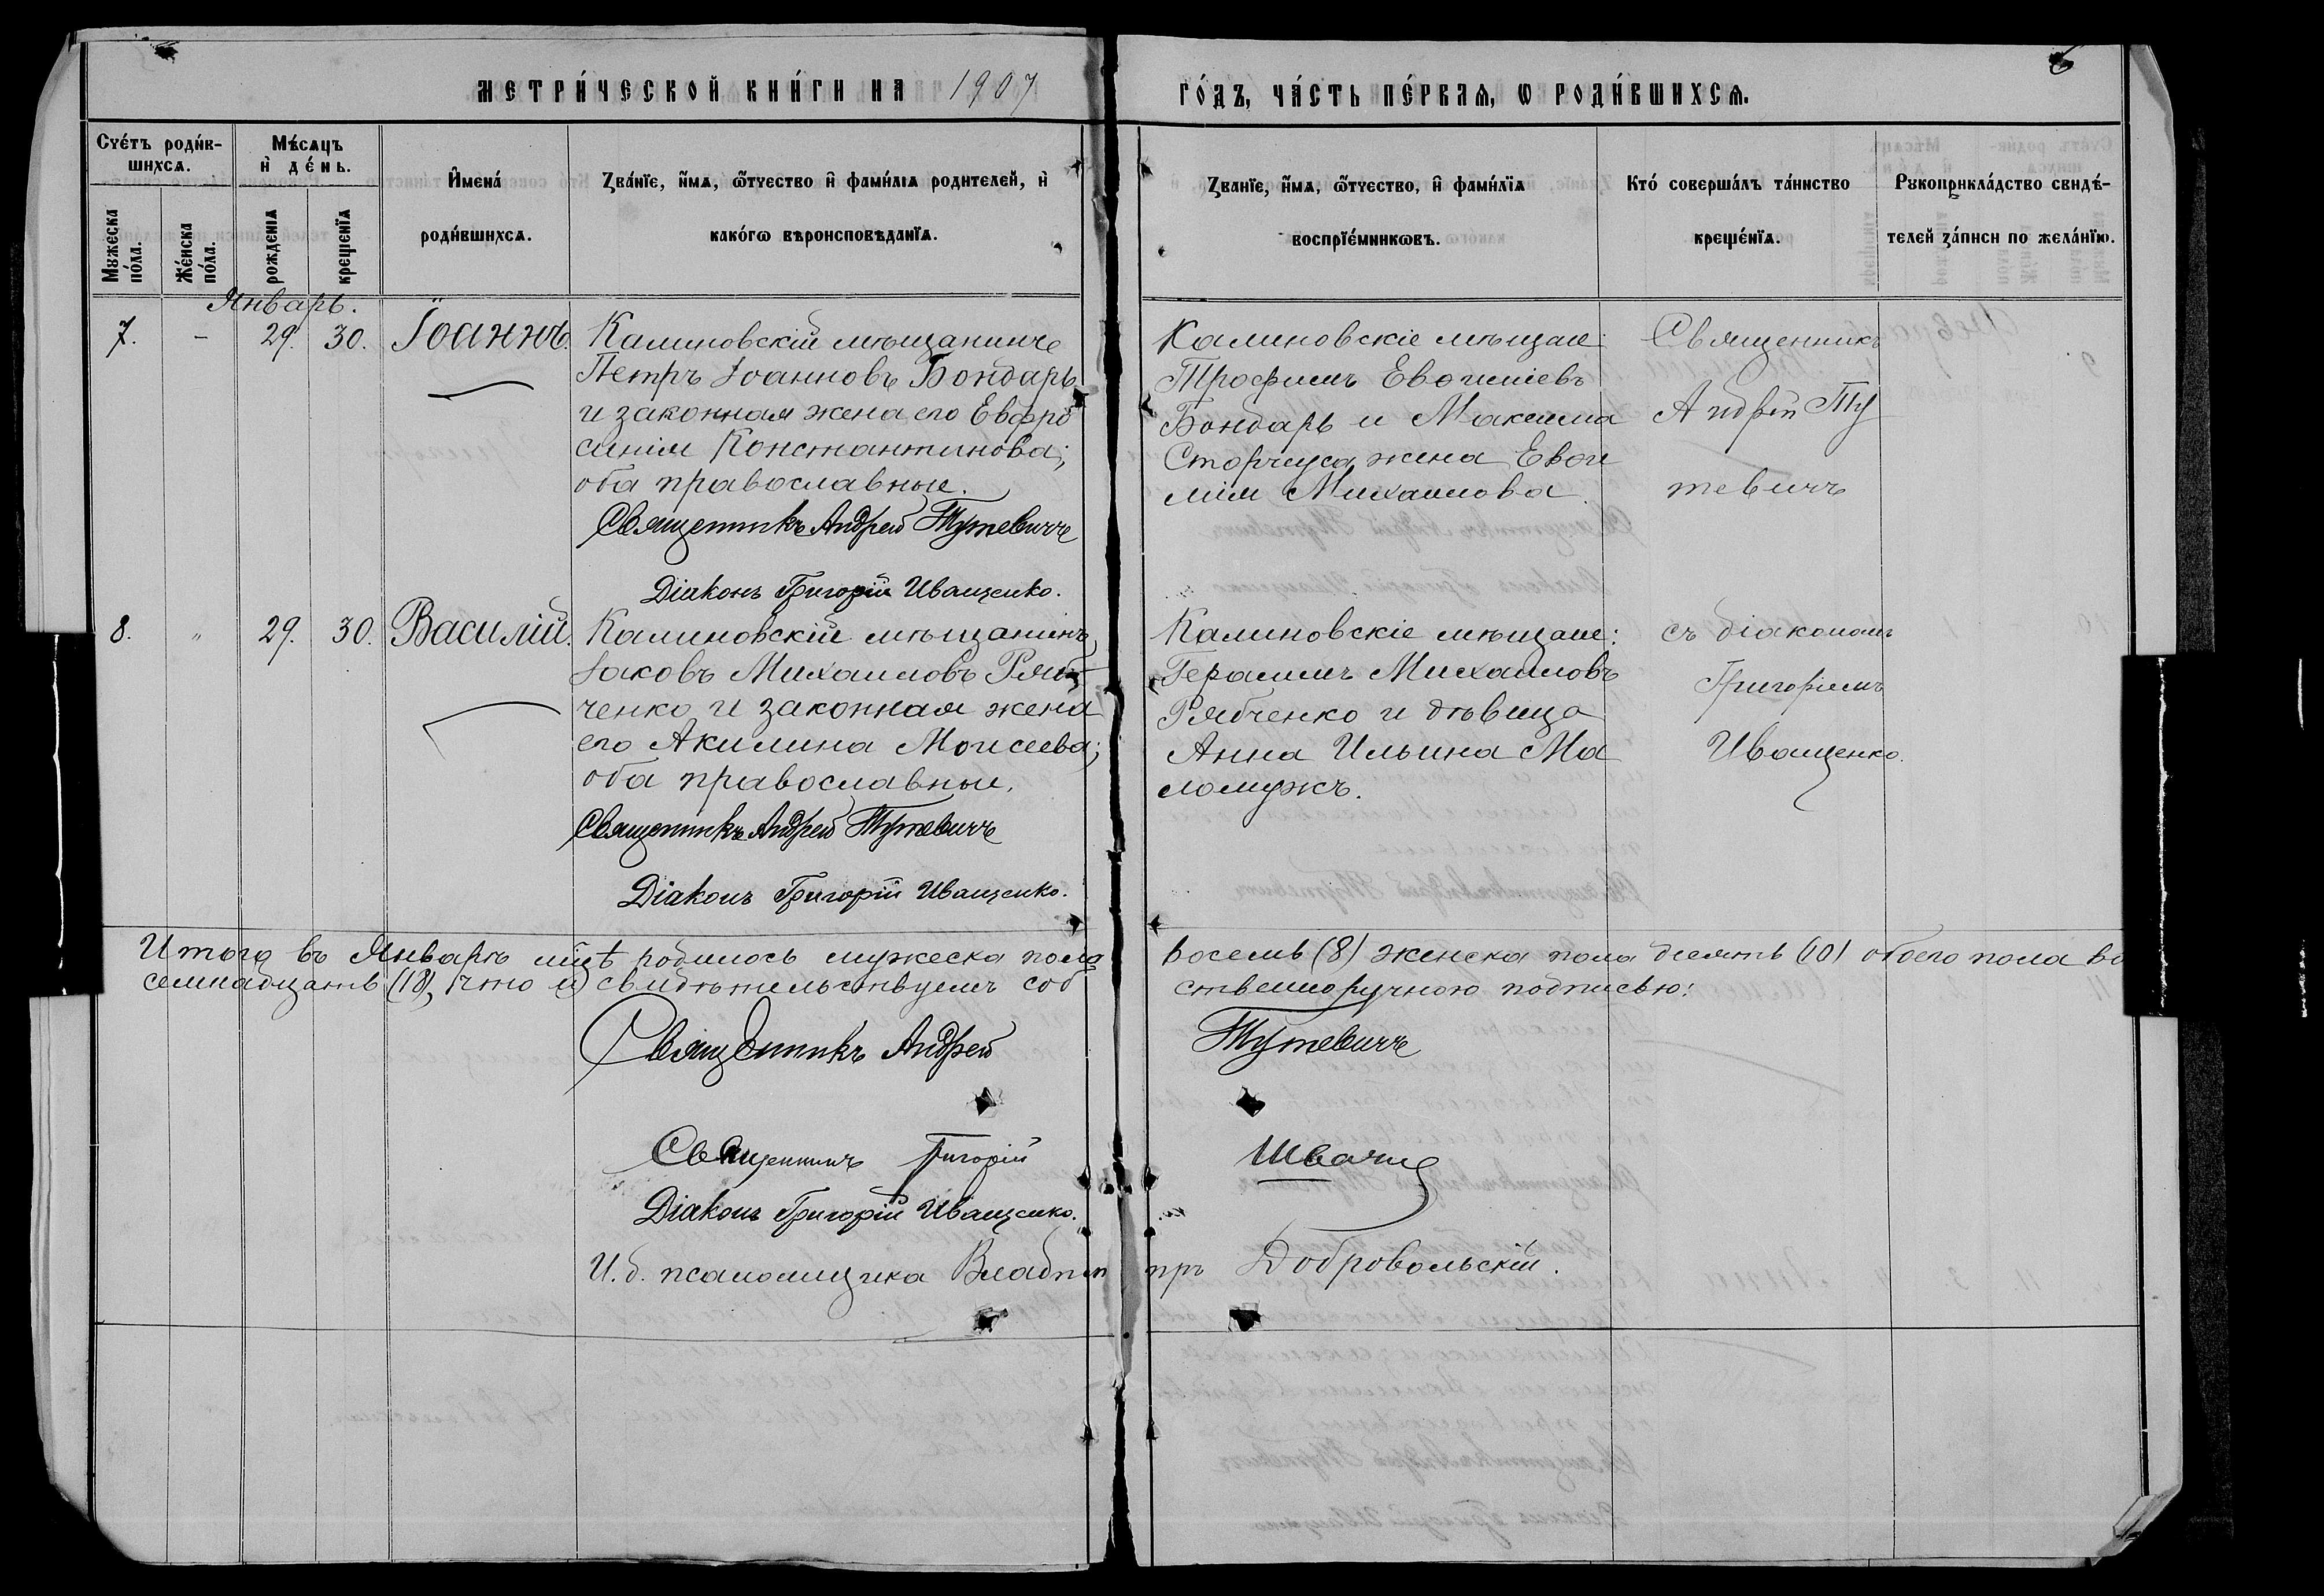 МЕТРИ́ЧЕСКОЙ КНИ́ГИ НА 1907
ГО́ДЪ, ЧА́СТЬ ПЕ́РВАѦ, Ѡ РОДИ́ВШИХСѦ.
Счéтъ роди́в-
шихсѧ.
Мꙋжеска
по́ла.
Же́нска
по́ла.
Мѣ́сѧцъ
и҆ де́нь.
рожденїѧ
крещенїѧ
И҆мена́
роди́вшихсѧ.
Зва́нїе, и҆́мѧ, ѻ҆́тчество и҆ фами́лїѧ родителей, и҆
како́гѡ вѣроисповѣданїѧ.
Званїе, и҆́мѧ, ѻ҆́тчество, и҆ фами́лїѧ
воспрїе́мникѡвъ.
Кто́ соверша́лъ та́инство
креще́нїѧ.
Рꙋкоприкла́дство свидѣ́-
телей за́писи по жела́нїю.
Январь.
7. - 29. 30. Іоаннъ.
Калиновскій мѣщанинъ
Петръ Іоанновъ Бондарь
и законная жена его Евфро
синія Константинова;
оба православные.
Священникъ Андрей Тутевичъ
Діаконъ Григорій Иващенко.
Калиновскіе мѣщане:
Трофимъ Евфиміевъ
Бондарь и Максима
Сторчуса жена Евфи
мія Михаилова.
Священникъ
Андрей Ту
тевичъ
8. " 29. 30. Василій.
Калиновскій мѣщанинъ
Іаковъ Михаиловъ Ряб-
ченко и законная жена
его Акилина Моисеева;
оба православные.
Священникъ Андрей Тутевичъ
Діаконъ Григорій Иващенко.
Калиновскіе мѣщане:
Герасимъ Михаиловъ
Рябченко и дѣвица
Анна Ильина Ма
ломужъ.
съ діакономъ
Григоріемъ
Иващенко.
Итого въ Январѣ мцѣ родилось мужеска пола восемь (8) женска пола десять (10) обоего пола во
семнадцать (18), что и свидѣтельствуемъ соб ственноручною подписью:
Священникъ Андрей Тутевичъ
Священникъ Григорій
Діаконъ Григорій Иващенко.
И.д. псаломщика Владим иръ Добровольскій.